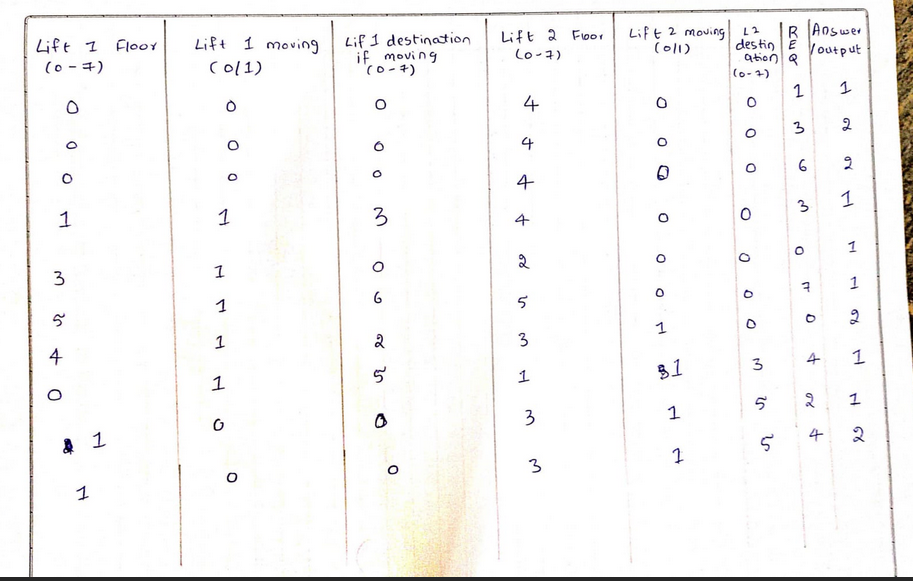 Lift 1 Floor (0-7) | Lift 1 moving (0/1) | Lif 1 destination if moving (0-7) | Lift 2 Floor (0-7) | Lift 2 moving (0/1) | L2 destination (0-7) | REQ | Answer/output
0 | 0 | 0 | 4 | 0 | 0 | 1 | 1
0 | 0 | 0 | 4 | 0 | 0 | 3 | 2
0 | 0 | 0 | 4 | 0 | 0 | 6 | 2
1 | 1 | 3 | 4 | 0 | 0 | 3 | 1
3 | 1 | 0 | 2 | 0 | 0 | 0 | 1
5 | 1 | 6 | 5 | 0 | 0 | 7 | 1
4 | 1 | 2 | 3 | 1 | 0 | 0 | 2
0 | 1 | 5 | 1 | 1 | 3 | 4 | 1
1 | 0 | 0 | 3 | 1 | 5 | 2 | 1
1 | 0 | 0 | 3 | 1 | 5 | 4 | 2